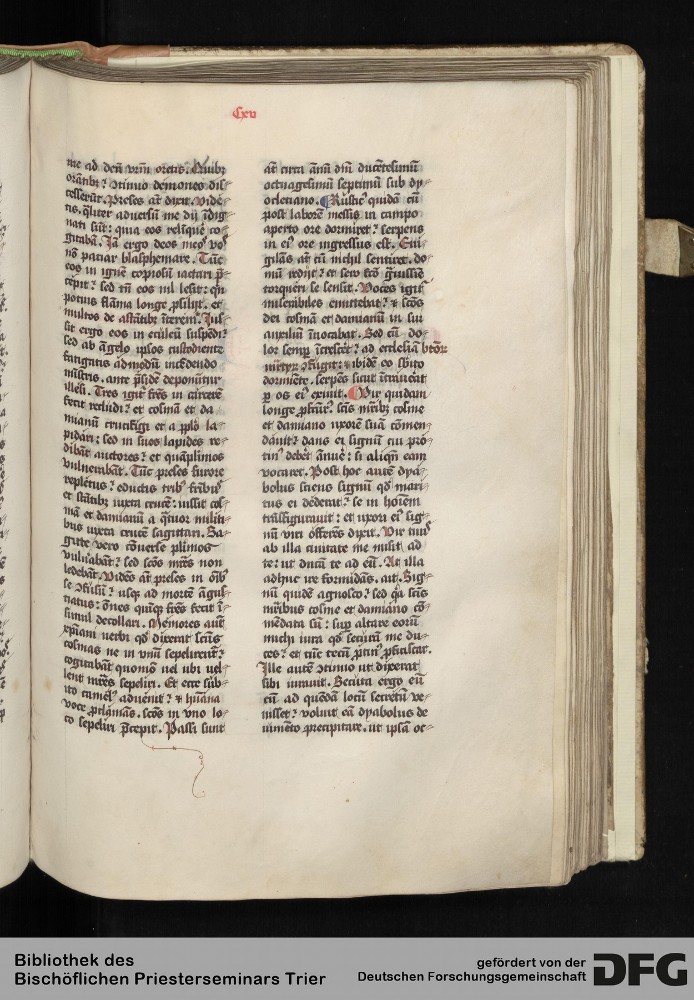 Cxv
me ad deū vr̄m oretis. Quibꝫ
orātibꝫ ꝯtinuo demones dis-
cesserūt. Preses aūt dixit. Vide-
tis. qͣliter adversū me dij īdig-
nati sūt: quia eos relīque co-
gitabā. Jā ergo deos meos vo
nō paciar blasphemare. Tūc
eos in ignē copiosū iactari p̄-
cepit: sed tn̄ eos nil lesit: qn̄
potius flāma longe ꝓsilijt. et
multos de astātibꝫ īteremit. Jus-
sit ergo eos in eculeū suspēdi:
sed ab āgelo ipsos custodiente
fatigatis admodū incedendo
mīstris. ante p̄sidē deponūtur
illesi. Tres igit̄ fr̄es in carcerē
fecit recludi: et cosmā et da
mianū crucifigi et a pplō la-
pidari: sed in suos lapides re-
dibāt auctores: et quāplimos
vulnerabāt. Tūc preses furore
repletus: eductis tribꝫ fr̄ibꝫ
et statibꝫ iuxta crucē: iussit cos-
mā et damianū a qͣtuor militi-
bus iuxta crucē sagittari. Sa-
gitte vero cōuerse plīmos
vulnabāt: sed scōs mr̄es non
ledebāt. Vidēs aūt preses in om̄ibꝫ
se ꝯfusū: usqꝫ ad mortē āgus-
tiatus: ōnes quīqꝫ fr̄es fecit ī-
simul decollari. Memores aūt
xp̄iani verbi qd̄ dixerat scūs
cosmas ne in vnū sepelirent̄:
cogitabāt quomō vel ubi uel-
lent mr̄es sepeliri. Et ecce sub-
ito camelꝰ aduenit: et hūana
voce ꝓclamās. scōs in vno lo-
co sepeliri p̄cepit. Passi sunt
aūt circa ānū dn̄i ducētesimū
octuagesimū septimū sub dy-
ocletiano. Rusticꝰ quidā cū
post laborē messis in campo
aperto ore dormiret: serpens
in eiꝰ ore ingressus est. Eui-
gilās aūt cū nichil sentiret. do-
mū redijt: et sero facto grauissime
torqueri se sensit. Voces igit̄
miserabiles emittebat: et scōs
dei cosmā et damianū in sui
auxiliū īuocabat. Sed cū do-
lor semꝑ īcresceret: ad ecclesiā btōꝝ
mr̄ꝝ ꝯfugit: et ibidē eo sbito
dormiēte. serpēs sicut ītrauerat
ꝑ os eiꝰ exiuit. Vir quidam
longe ꝓfecturꝰ: scīs mr̄ibꝫ cosme
et damiano uxorē suā cōmen-
dauit: dans ei signū cui pro-
tinꝰ debet ānue: si aliqn̄ eam
vocaret. Post hoc autē dya-
bolus sciens signū qd̄ mari-
tus ei dederat: se in hoīem
trāsfigurauit: et uxori eiꝰ sig-
nū viri offerēs dixit. Vir tuus
ab illa ciuitate me misit ad
te: ut ducā te ad eū. At illa
adhuc ire formidās. ait. Sig-
nū quidē agnosco: sed qa scīs
mr̄ibus cosme et damiano cō-
mēdata sū: sup altare eorū
michi iura qd̄ securā me du-
ces: et tūc tecū ꝓtinꝰ ꝓficiscar.
Ille autē ꝯtinuo ut dixerat
sibi iurauit. Secuta ergo eū
cū ad quēdā locū secretū ve-
nisset: voluit eā dyabolus de
iumēto precipitare. ut ipsā oc-
Bibliothek des
Bischöflichen Priesterseminars Trier
gefördert von der
Deutschen Forschungsgemeinschaft
DFG